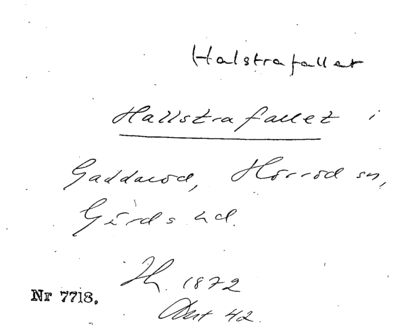 Halstrafallet
Hallstrafallet i
Gaddarod, Hörröd sn,
Gärds hd.
Th. 1872
Nr 7718.
42.